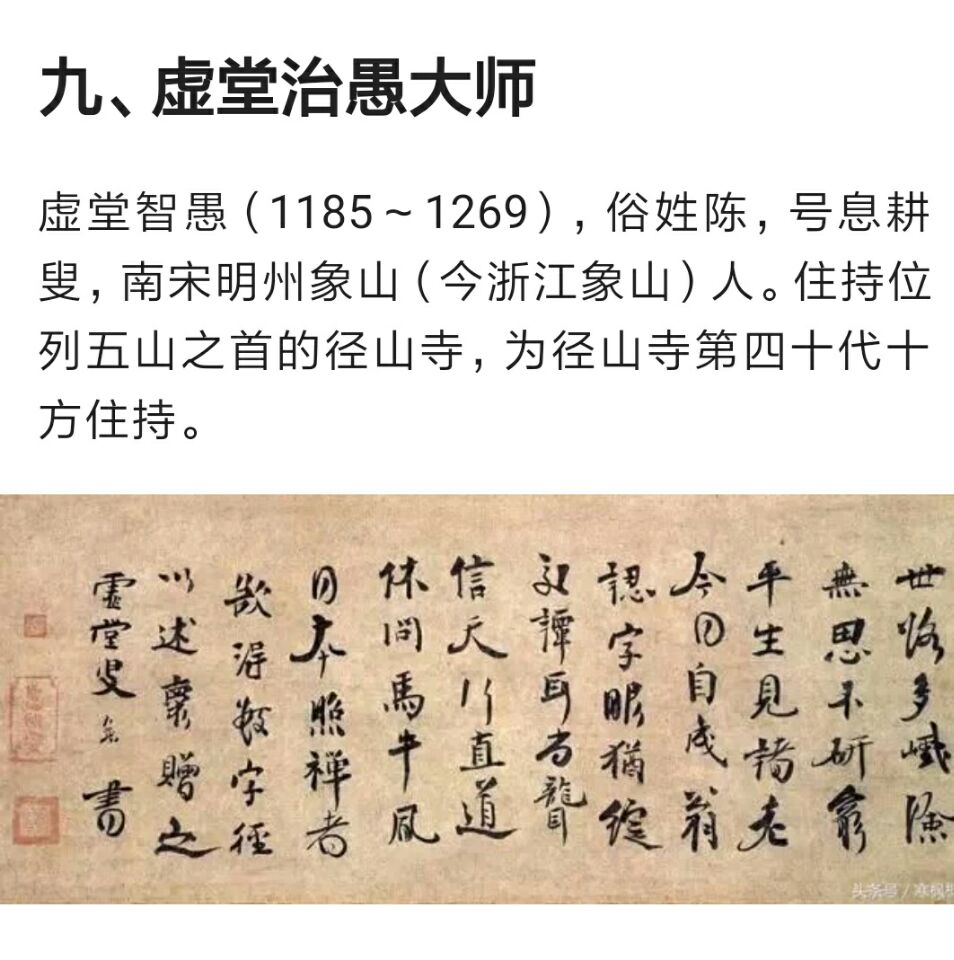 九、虚堂治愚大师
虚堂智愚（1185～1269），俗姓陈，号息耕
叟，南宋明州象山（今浙江象山）人。住持位
列五山之首的径山寺，为径山寺第四十代十
方住持。
世路多巇險
無思不研窮
平生見諸老
今日自成翁
認字眼猶綻
交譚耳尚聾
信天行直道
休問馬牛風
日本照禪者
欲得數字徑
以述懷贈之
虛堂叟書
头条号 / 寒枫